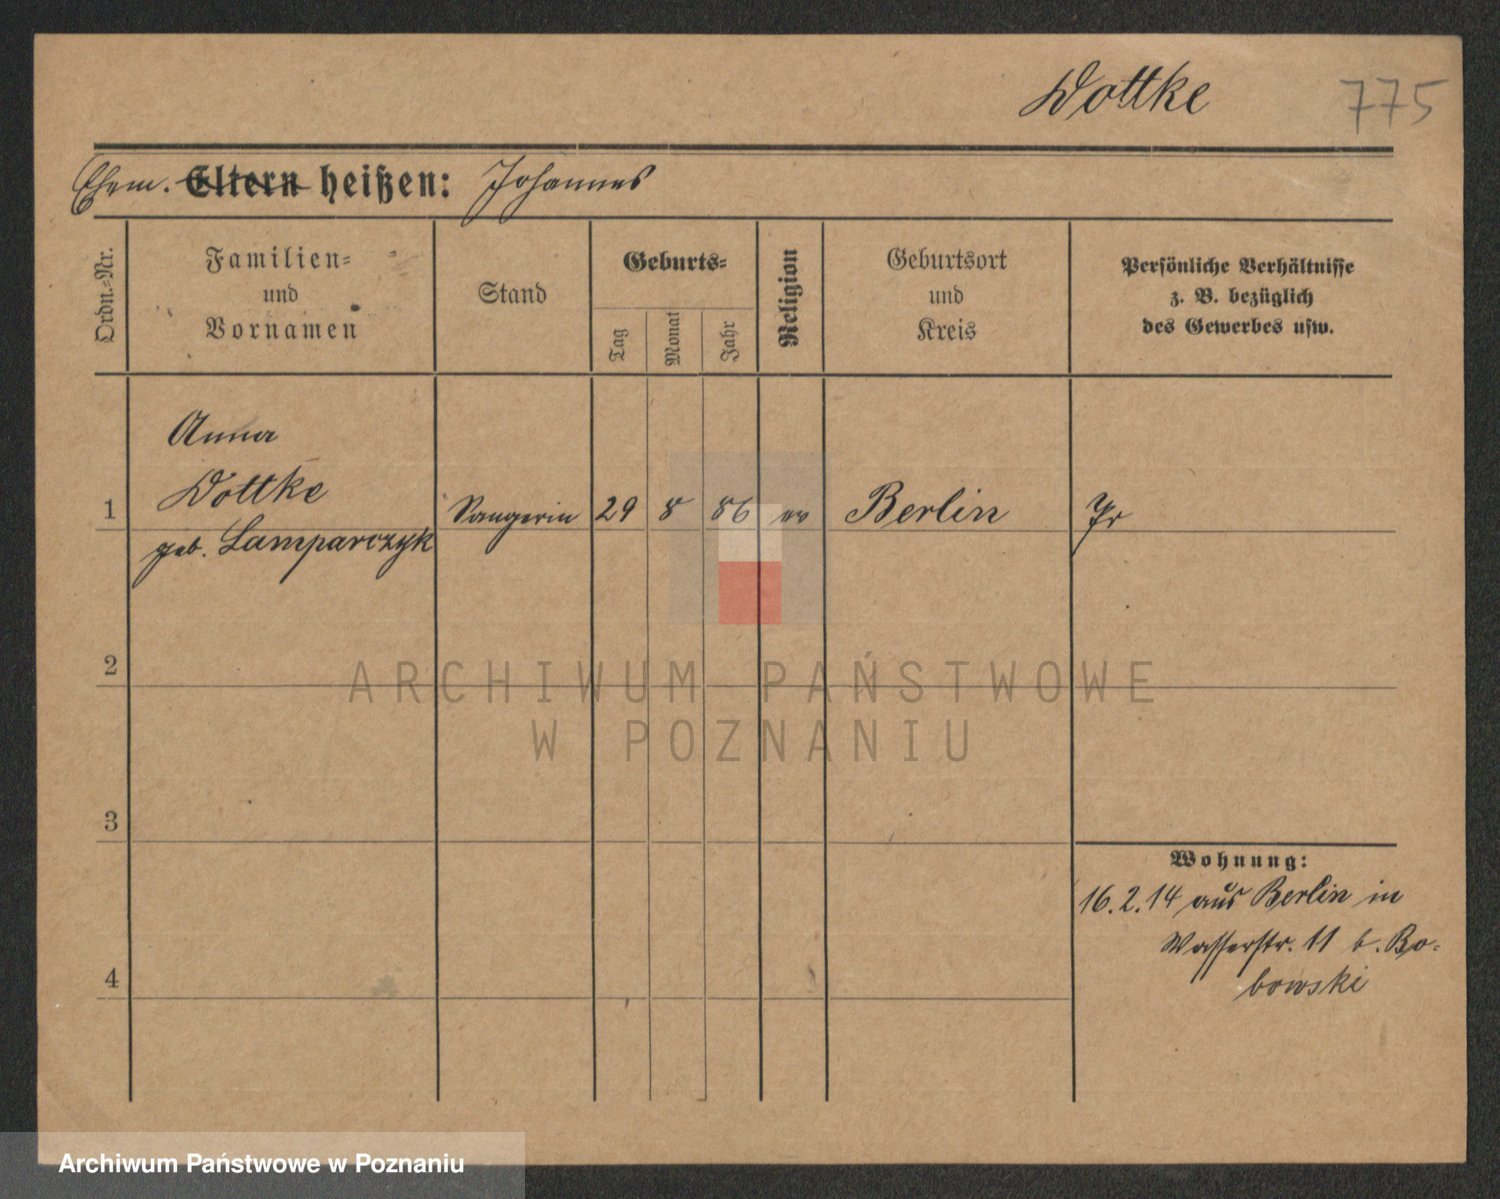 Dottke 775
Ehem. Eltern heißen: Johannes
Ordn.-Nr.
Familien-
und
Vornamen
Stand
Geburts-
Tag
Monat
Jahr
Religion
Geburtsort
und
Kreis
Persönliche Verhältnisse
z. B. bezüglich
des Gewerbes usw.
Anna
Dottke
1 Sangerin 29 8 86 ev Berlin Pr
geb. Lamparczyk
2
ARCHIWUM PAŃSTWOWE
W POZNANIU
3
Wohnung:
16.2.14 aus Berlin in
Wasserstr. 11 b. Bo-
4
bowski
Archiwum Państwowe w Poznaniu